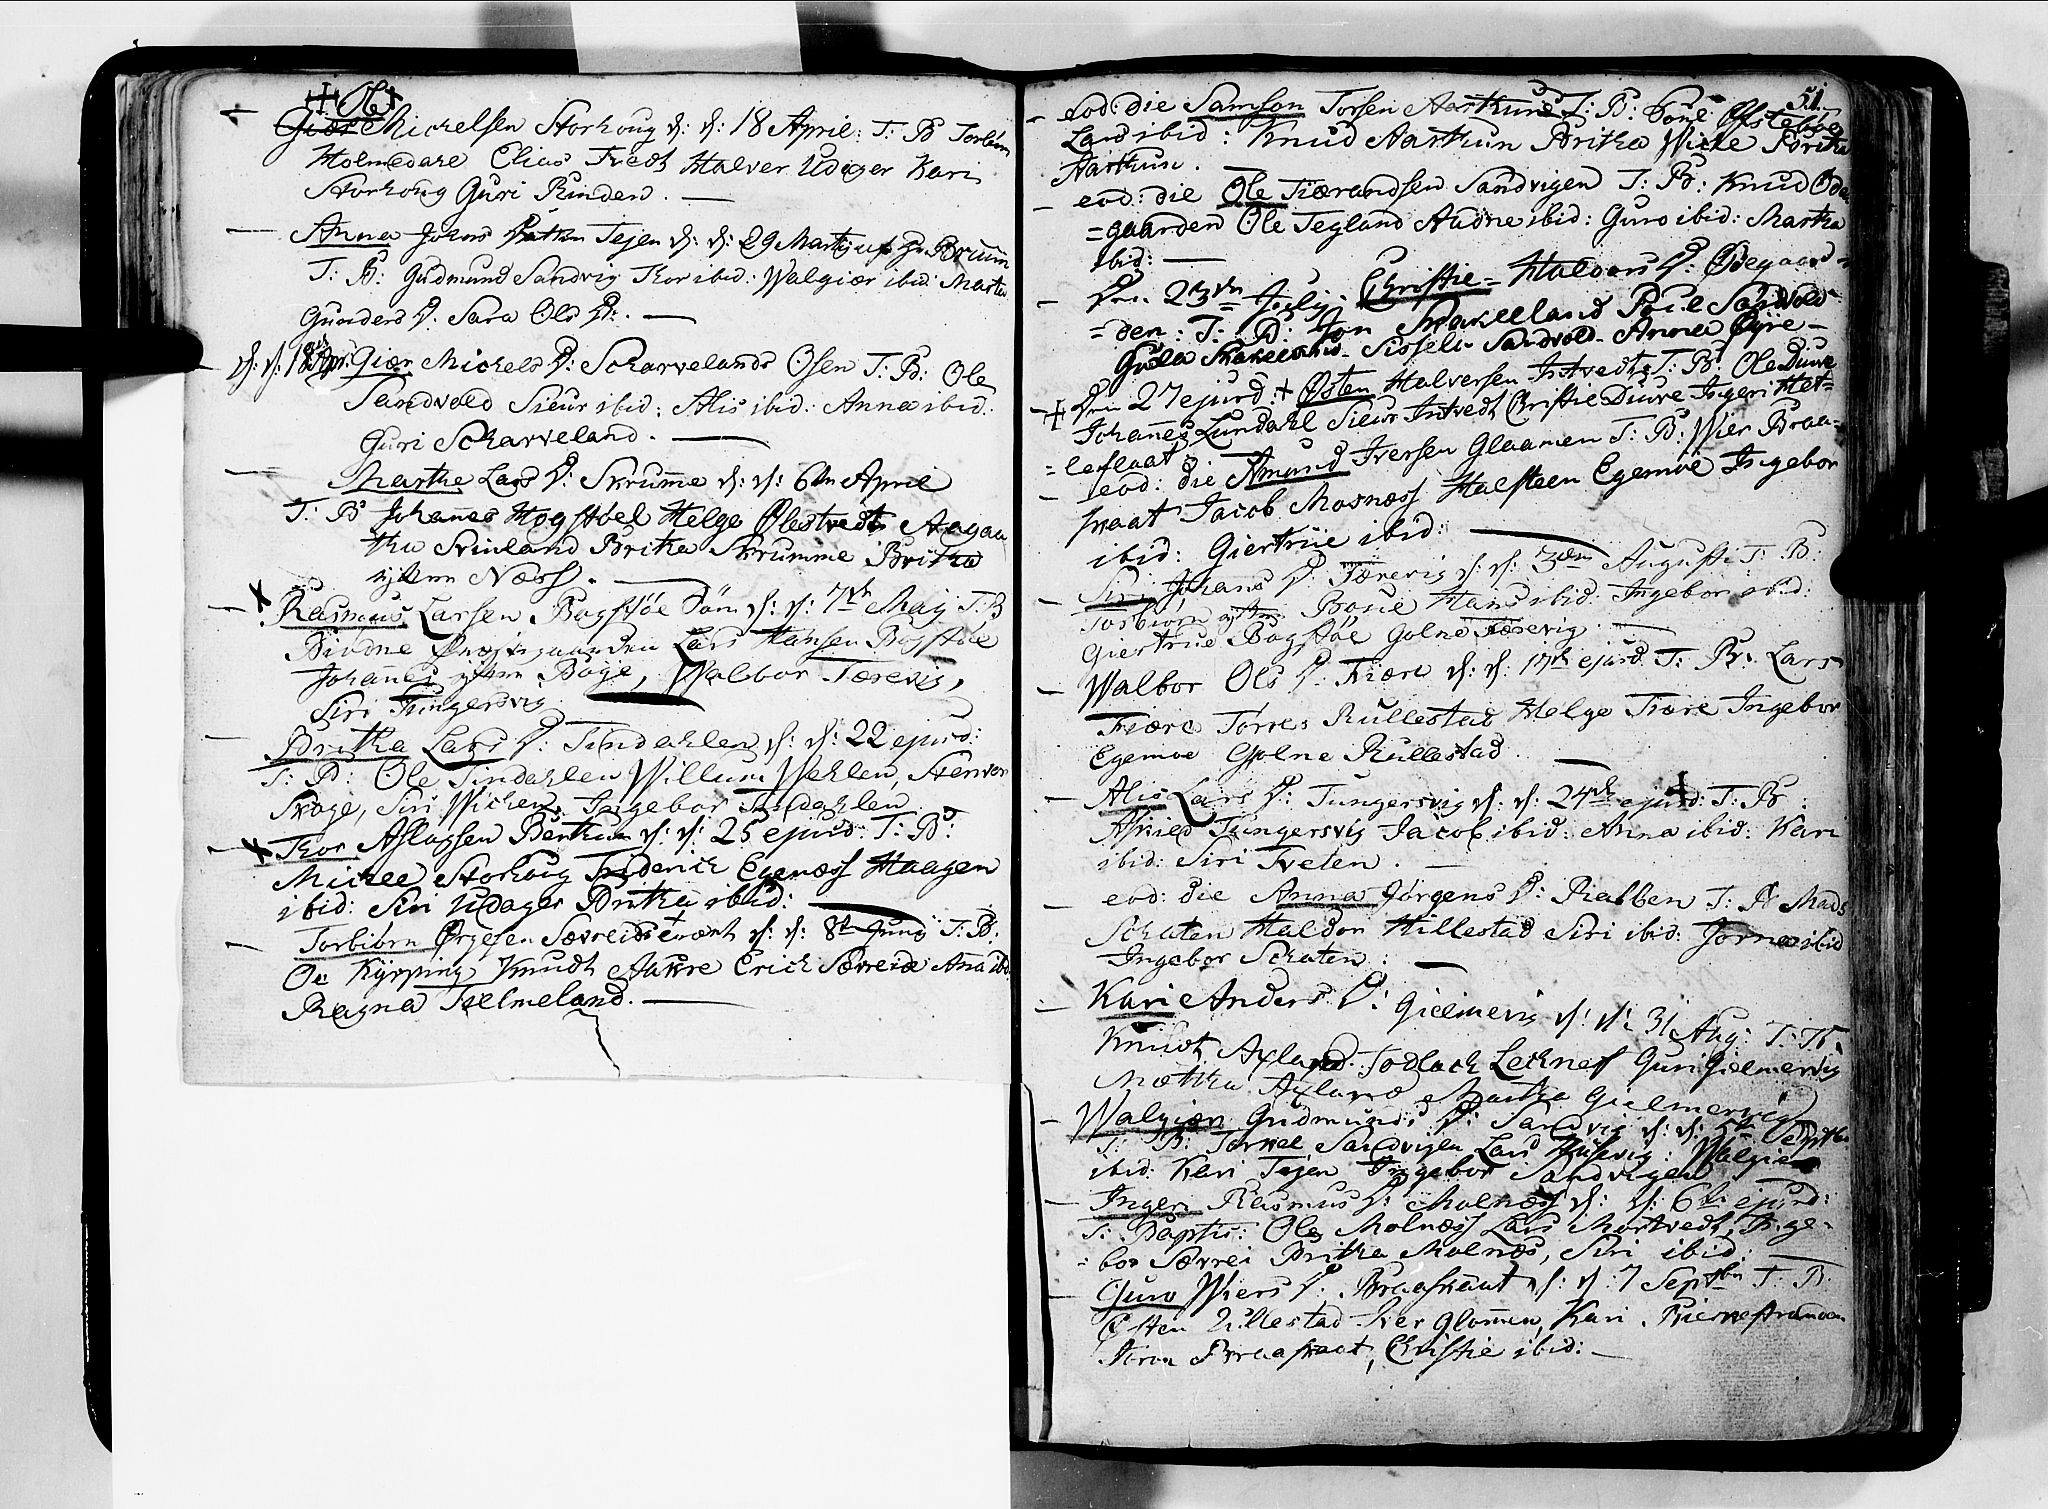 Ole
Giær Mickelsen Storhoug d: d: 18 April: T: B Torbiörn
Holmedare Elias Tvedt Halver Udager Kari
Storhoug Guri Rinden.
Anna Johns Tejen d: d: 29 Martij
T: B: Gudmund Sandvig Thor ibid: Walgiær ibid: Marta
Gunders D: Sara Ols D:
d: d: 18 Apr: Giær Mickels D: Scharvelands Osen T: B: Ole
Sandvold Siur ibid: Alis ibid: Anna ibid:
Guri Scharveland.
Marthe Lars D: Skrumme d: d: 6te April
T: B Johanes Høgstöel Helge Ølestvedt Aagaa
tha Svinland Britha Skrumme Britha
Næss.
Rasmus Larsen Bogstøe d: d: 7de Maij T: B
Lars Hansen Bogstøe
Johanes Böije, Walbor Tærevig,
Siri Tungersvig
Britha Lars D: Tindahlen d: d: 22 ejusd:
T: B: Ole Tindahlen Willum Wehlen, Stenvor
Skoge, Siri Wichen Ingebor Tindahlen
Thor Aslagsen Berthun d: d: 25 ejusd: T: B:
Mickel Storhoug Friderich Egenæss Haagen
ibid: Siri Udager Britha ibid:
Torbiörn Ørgesen Sævreid d: d: 8de Junij T: B:
Ole Kypping Knudt Aakre Erich Sævreid Anna ibd.
Ragna Tvelmeland.
51.
eod: die Samson Torsen Aarthun T: B: Poul Østebøe
Lars ibid: Knud Aarthun Britha Wicke Britha
Aarthun.
eod: die Ole Tiærandsen Sandvigen T: B: Knud Øde
=gaarden Ole Tegland Audne ibid: Guro ibid: Martha
ibid:
Den 23de Julij Christie Haldors D: Ødegaar
=den: T: B: Jon Skakeland Poul Sandvold
Guela Sissele Sandvold Anna Øyre
Den 27 ejusd: Østen Halversen Intvedt T: B: Ole Duve
Johanes Lundahl Siur Intvedt Christie Duve Ingeri Het=
=leflaat
eod: die Amund Iversen Glaamen T: B: Wier Braa=
skaat Jacob Mosnæss Halsteen Egemoe Ingebor
ibid: Giertrue ibid:
Siri Johans D: Tærevig d: d: 3den Augusti T: B:
Torbiörn Børue Hans ibid: Ingebor ibid:
Giertrue Bogstøe Golne Tærevig
Walbor Ols D: Fiære d: d: 17de ejusd T: B: Lars
Fiære Torres Rullestad Helge Fiære Ingebor
Egemoe Golne Rullestad
Alis Lars D: Tungersvig d: d: 24de ejusd: T: B
Tungersvig Jacob ibid: Anna ibid: Kari
ibid: Siri Tveten.
eod: die Anna Jørgens D: Rabben T: B Mads
Schaten Haldor Hillestad Siri ibid: ibid
Ingebor Schaten:
Kari Anders D: Gielmevig d: d: 31 Aug: T: B:
Knudt Axland Todlach Leckness Guri Gielmervig
Mættha Axland Martha Gielmervig
Walgiær Gudmunds D: Sandvig d: d: 5te Septbr
T: B: Torkel Sandvigen Lars Walgier
ibid: Kari Tejen Ingebor Sandvigen
Ingeri Rasmus D: Molnæss d: d: 6te ejusd:
T: Baptis: Ole Molnæss Lars Mortvedt, Inge=
=bor Sævrei Britha Molnæs, Siri ibid:
Guro Wiers D: Braaskaat d: d: 7 Septbr T: B:
Østen Lillestad Iver Glomen, Kari
Braaskaat, Christie ibid: